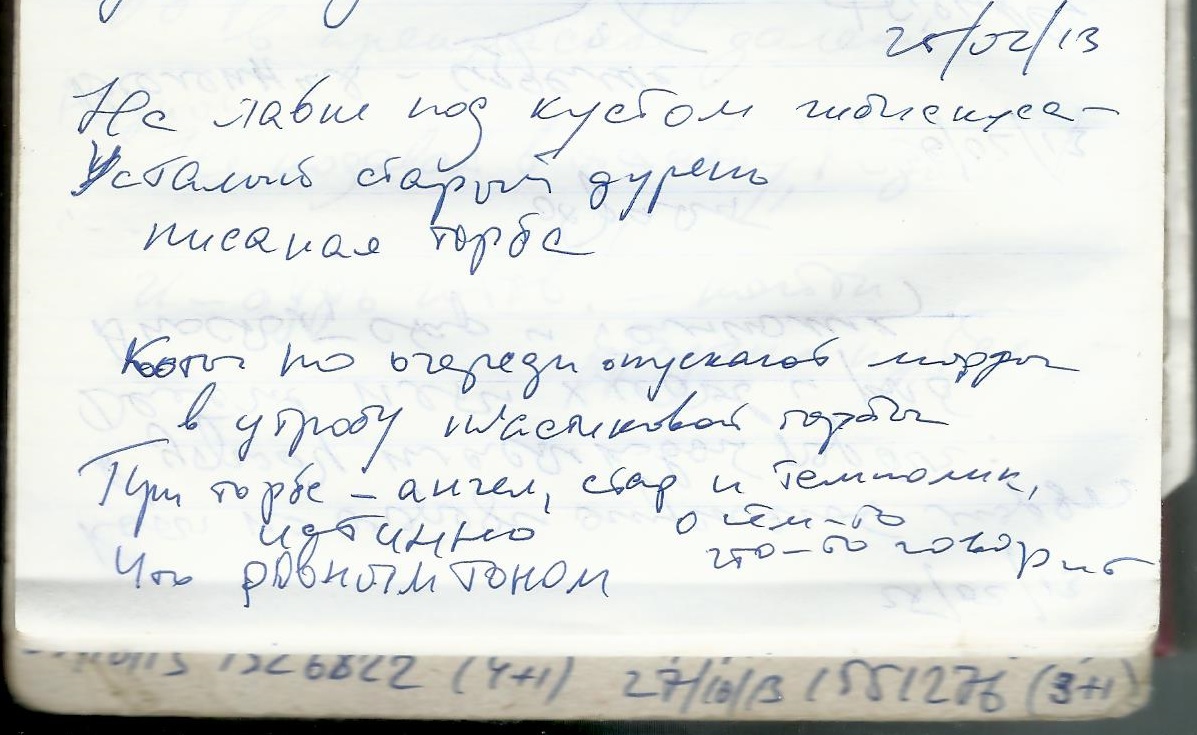 25/02/13
На лавке под кустом гибискуса –
Усталый старый дурень
писаная торба
Коты по очереди опускают морды
в утробу пластиковой торбы
При торбе – ангел, стар и темнолик,
истинно о чём-то
Что ровным тоном что-то говорит
/10/13 1526822 (4+1) 27/10/13 1551276 (3+1)